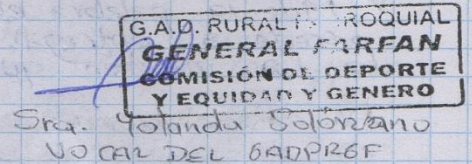 G.A.D. RURAL PARROQUIAL
GENERAL FARFAN
COMISIÓN DE DEPORTE
Y EQUIDAD Y GENERO
Sra. Yolanda Solórzano
VOCAL DEL GADPRGF